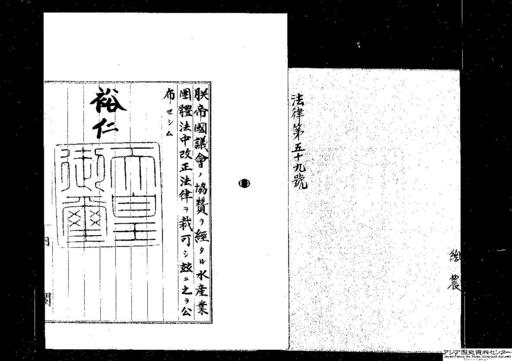 法律第五十九號
朕帝國議會ノ協賛ヲ經タル水産業
團體法中改正法律ヲ裁可シ茲ニ之ヲ公
布セシム
裕仁
天皇御璽
内閣
農
アジア歴史資料センター